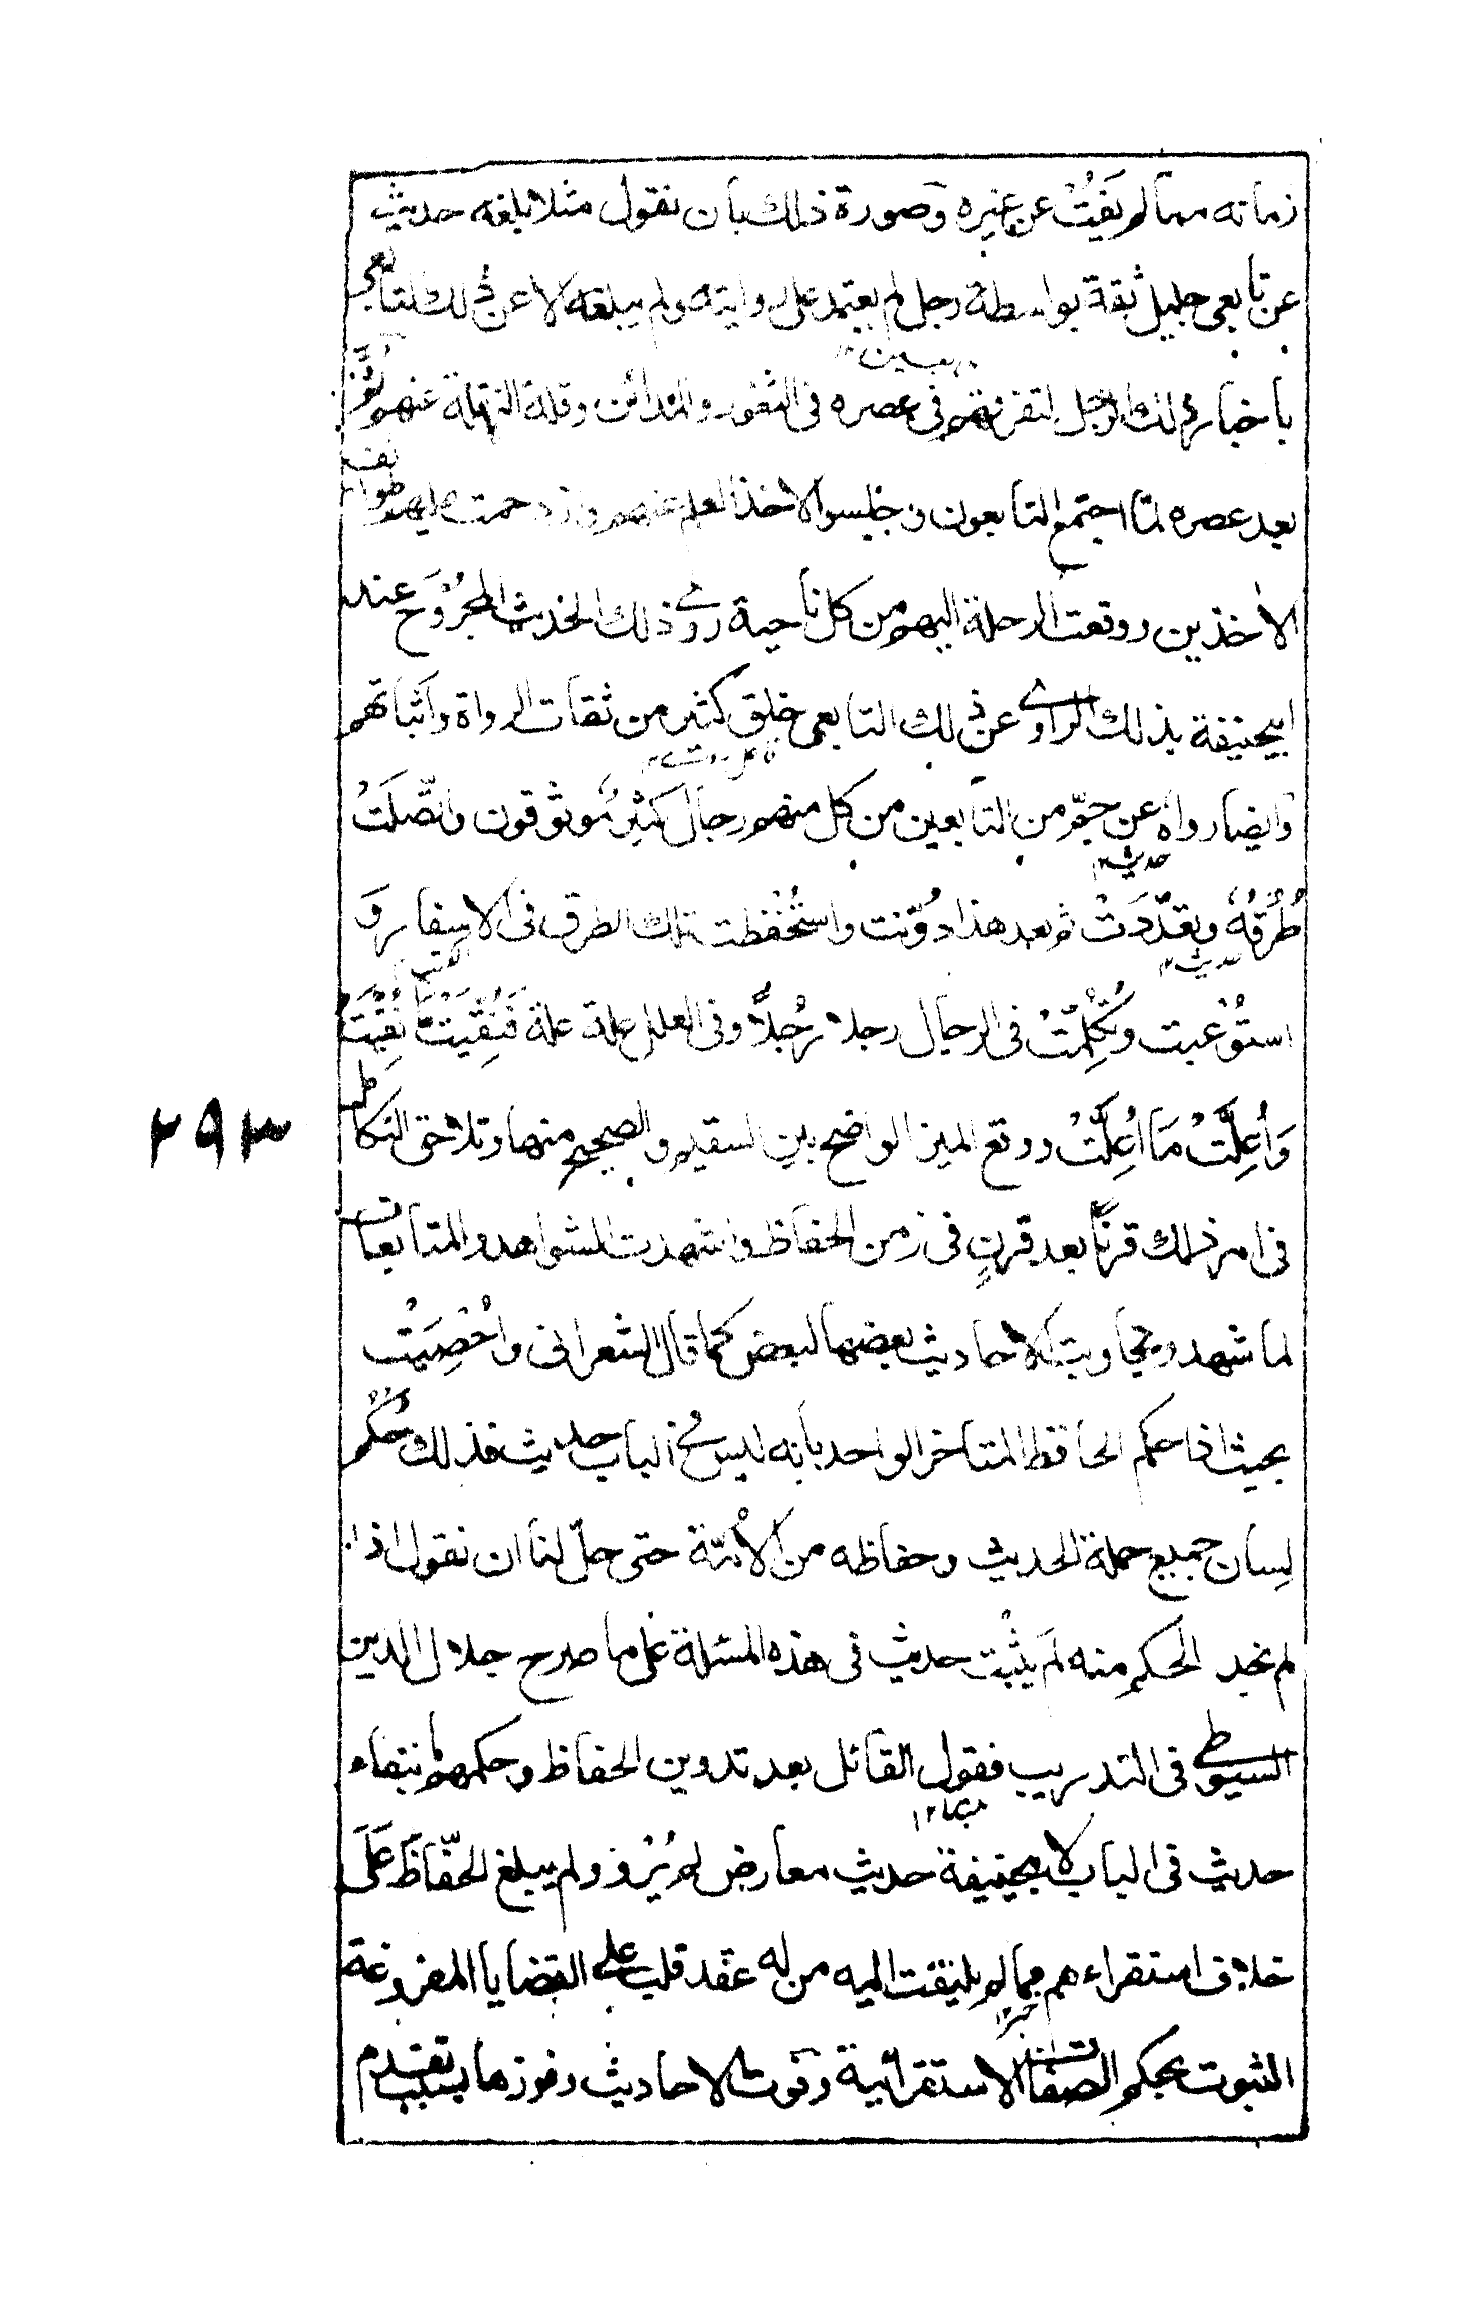 زمانه مما لم يَفُتْ عن غيره وصورة ذلك بان نقول مثلا بلغه حديث
عن تابعي جليل ثقة بواسطة رجل لم يعتمد على روايته ولم يبلغه الا عن ذلك التابعي
باخبار ذلك الرجل لتفرقهم في عصره في الثغور والمدائن وقلة النقلة عنهم ثم
بعد عصره لما اجتمع التابعون وجلسوا لاخذ العلم عنهم وازدحمت عليهم طوائف
الاخذين ووقعت الرحلة اليهم من كل ناحية روى ذلك الحديث المجرُوْحَ عند
ابيحنيفة بذلك الراوي عن ذلك التابعي خلق كثير من ثقات الرواة واثباتهم
وايضا رواه عن جمّ من التابعين من كل منهم رجال كثيرٌ موثوقون واتّصلَتْ
طُرُقُهُ وتعدّدَتْ ثم بعد هذا دُوّنت واستُحْفظت تلك الطرق في الاسفار وَ
استُوْعبت وتُكُلِّمَتْ في الرجال رجلا رجُلاً وفي العلل علة علة فَنُقِّيَتْ مَا نُقِّيَتْ
وَاُعِلَّتْ مَا اُعِلَّتْ ووقع الميز الواضح بين السقيم والصحيح منها وتلاحق
في امر ذلك قرناً بعد قرنٍ في زمن الحفاظ واشهدت الشواهد والمتابعات
لما شهد وتجاوبت الاحاديث بعضها لبعض كما قال الشعراني واُحْصِيَتْ
بحيث اذا حكم الحافظ المتاخر الواحد بانه ليس في الباب حديث فذلك حُكْم
لسان جميع حملة الحديث وحفاظه من الأئمّة حتى حلّ لنا ان نقول اذا
لم نجد الحكم منه لَم يثْبت حديث في هذه المسئلة على ما صرح جلال الدين
السيوطي في التدريب فقول القائل بعد تدوين الحفاظ وحكمهم بانتفاء
حديث في الباب لابيحنيفة حديث معارض لم يُرْو ولم يبلغ الحفّاظَ عَلَى
خلاف استقراءهم مما لم يلتفت اليه من له عقد قلب على القضايا المفروغة
الثبوت بحكم الصفات الاستقرائية وفوت الاحاديث وفوزها بسبب تقدم
حديث
حديث
٢٩٣